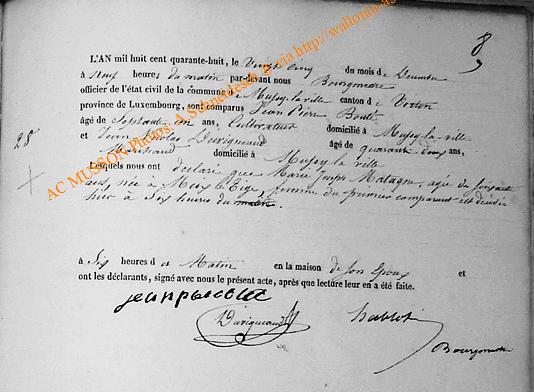 8
L'AN mil huit cent quarante-huit, le Vingt Cinq du mois de Decembre
à Neuf heures du matin par-devant nous Bourgmestre
officier de l'état civil de la commune de Mussy-la-ville canton de Virton
province de Luxembourg, sont comparus Jean Pierre Boulé
âgé de Septante un ans, Cultivateur domicilié à Mussy-la-ville
28 et Jean Nicolas Durigneaud âgé de quarante deux ans,
Marchand domicilié à Mussy la ville
Lesquels nous ont déclaré que Marie Joseph Matagne, agée de soixante
ans, née à Meix le Tige, femme du premier comparant est décédée
hier à Six heures du matin.
à Six heures d u Matin en la maison de Son Epoux et
ont les déclarants, signé avec nous le présent acte, après que lecture leur en a été faite.
Durigneaud
Bourgmestre
AC MUSSON Photos A Schnedesse © via http://wallonia-as